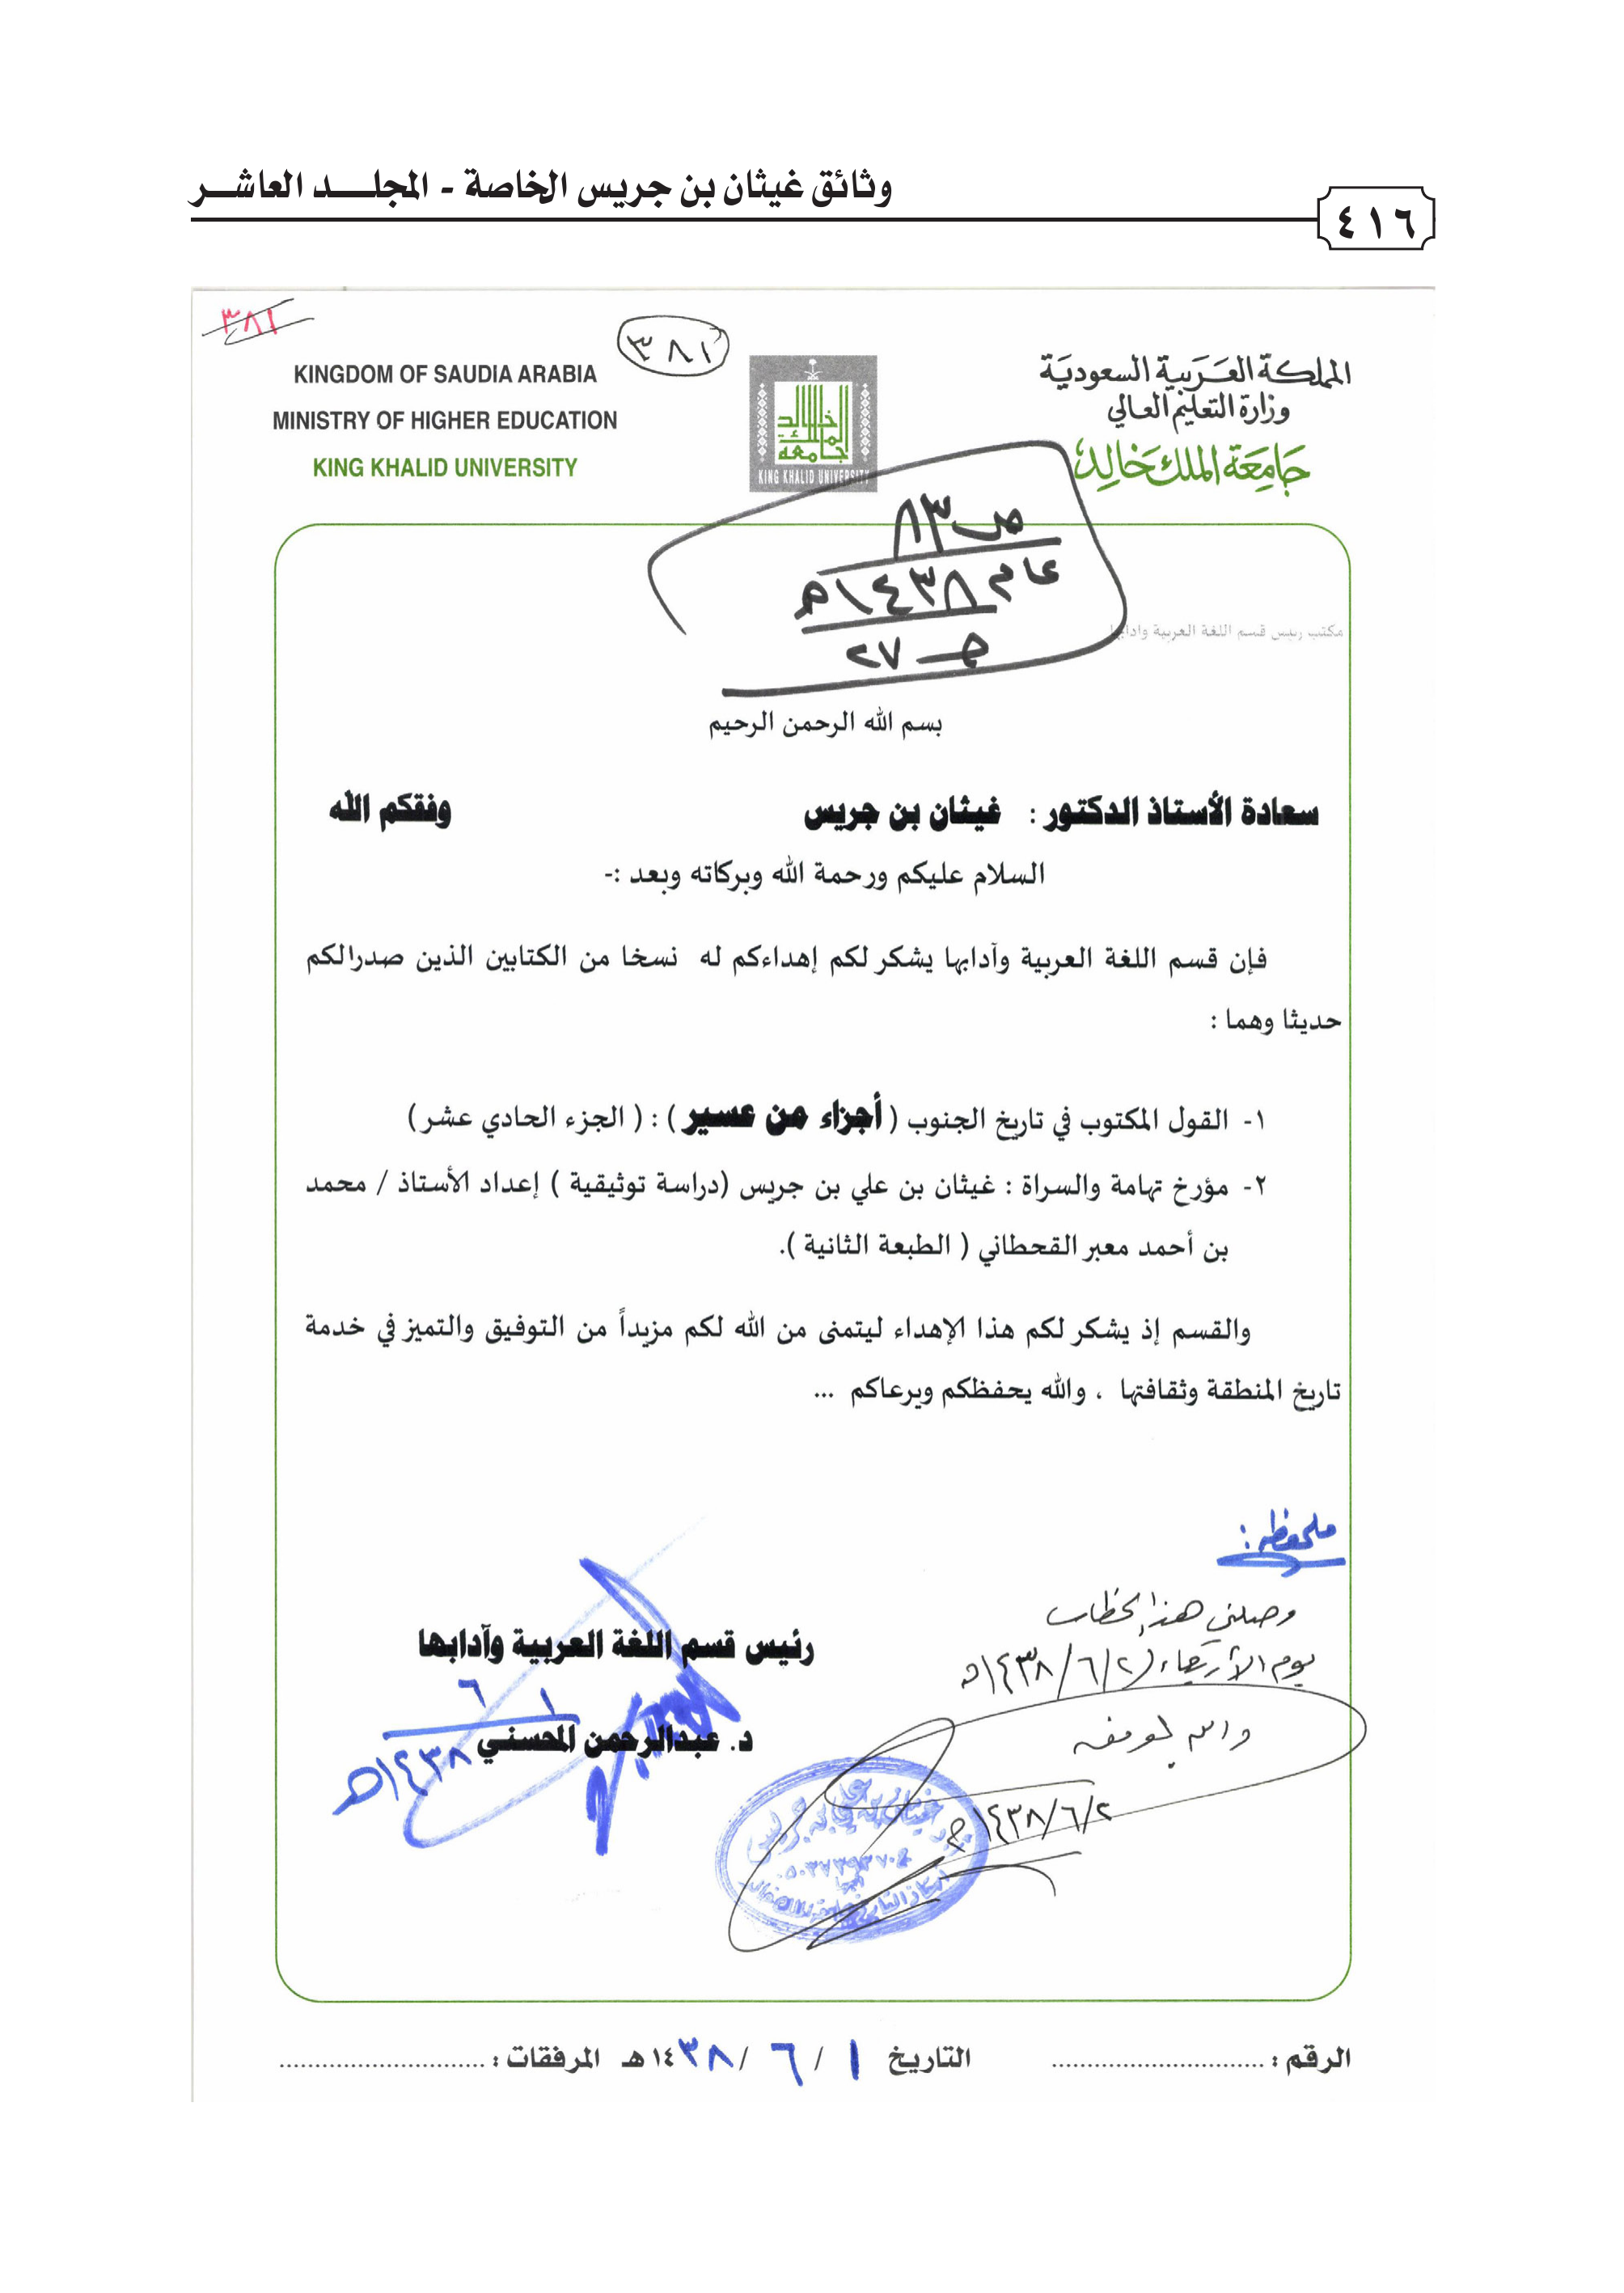 وثائق غيثان بن جريس الخاصة - المجلد العاشر
٤١٦
٣٨١
٣٨١
KINGDOM OF SAUDIA ARABIA
MINISTRY OF HIGHER EDUCATION
KING KHALID UNIVERSITY
جامعة الملك خالد
KING KHALID UNIVERSITY
المملكة العربية السعودية
وزارة التعليم العالي
جامعة الملك خالد
ص ٣٨
عام ١٤٣٨هـ
هـ - ٢٧
مكتب رئيس قسم اللغة العربية وآدابها
بسم الله الرحمن الرحيم
سعادة الأستاذ الدكتور : غيثان بن جريس وفقكم الله
السلام عليكم ورحمة الله وبركاته وبعد :-
فإن قسم اللغة العربية وآدابها يشكر لكم إهداءكم له نسخا من الكتابين الذين صدرالكم
حديثا وهما :
١- القول المكتوب في تاريخ الجنوب ( أجزاء من عسير ) : ( الجزء الحادي عشر )
٢- مؤرخ تهامة والسراة : غيثان بن علي بن جريس (دراسة توثيقية ) إعداد الأستاذ / محمد
بن أحمد معبر القحطاني ( الطبعة الثانية ).
والقسم إذ يشكر لكم هذا الإهداء ليتمنى من الله لكم مزيداً من التوفيق والتميز في خدمة
تاريخ المنطقة وثقافتها ، والله يحفظكم ويرعاكم ...
ملحوظة :
وصلني هذا الخطاب
يوم الأربعاء ٢/٦/١٤٣٨هـ
والله الموفق
٢/٦/١٤٣٨هـ
رئيس قسم اللغة العربية وآدابها
د. عبدالرحمن المحسني
١/٦
١٤٣٨هـ
أ.د غيثان بن علي بن جريس
الرقم : ............................
التاريخ ١ / ٦ / ١٤٣٨ هـ
المرفقات : ............................